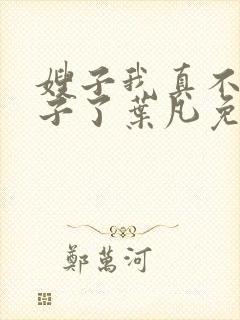 嫂子我真不
子了葉凡免
鄭萬河